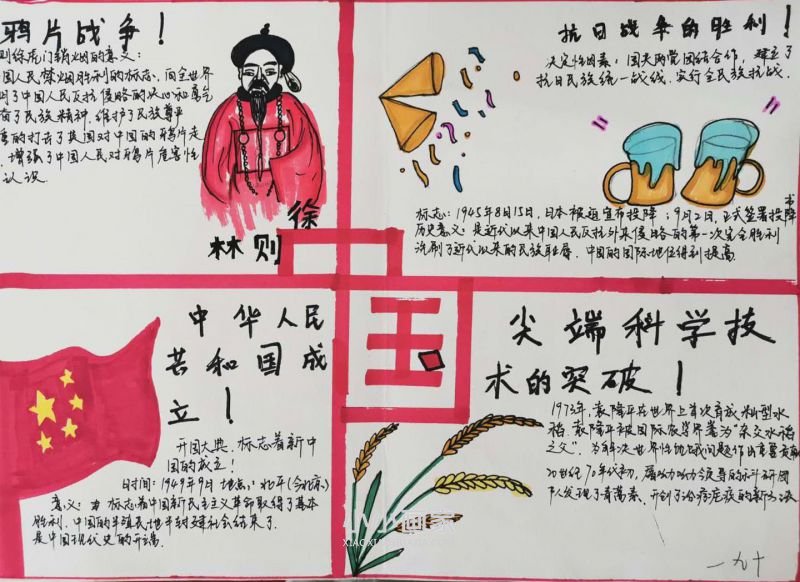 鸦片战争！
则徐虎门销烟的意义：
国人民禁烟胜利的标志，向全世界
明了中国人民反抗侵略的决心和勇气
奋了民族精神，维护了民族尊严
重的打击了英国对中国的鸦片走
增强了中国人民对鸦片危害性
认识
林则徐
抗日战争的胜利！
决定性因素：国共两党团结合作，建立了
抗日民族统一战线，实行全民族抗战
标志：1945年8月15日，日本被迫宣布投降；9月2日，正式签署投降书
历史意义：是近代以来中国人民反抗外来侵略的第一次完全胜利
洗刷了近代以来的民族耻辱，中国的国际地位得到提高
中国
中华人民
共和国成
立！
开国大典，标志着新中
国的成立！
时间：1949年9月 地点：北平（今北京）
意义： 标志着中国新民主主义革命取得了基本
胜利，中国的半殖民地半封建社会结束了
是中国现代史的开端
尖端科学技
术的突破！
1973年，袁隆平在世界上首次育成籼型水
稻，袁隆平被国际农学界誉为“杂交水稻
之父”，为解决世界性的 问题作出重要贡献
20世纪70年代初，屠呦呦领导的科研团
队发现了青蒿素，开创了治疗疟疾的新方法
一九十